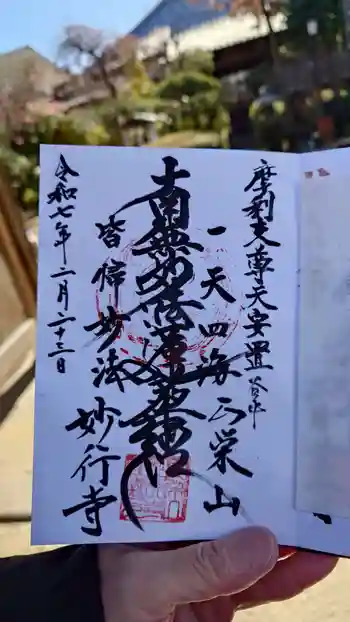 摩利支尊天安置 谷中
一天四海 正栄山
南無妙法蓮華経
皆帰妙法 妙行寺
令和七年二月二十三日